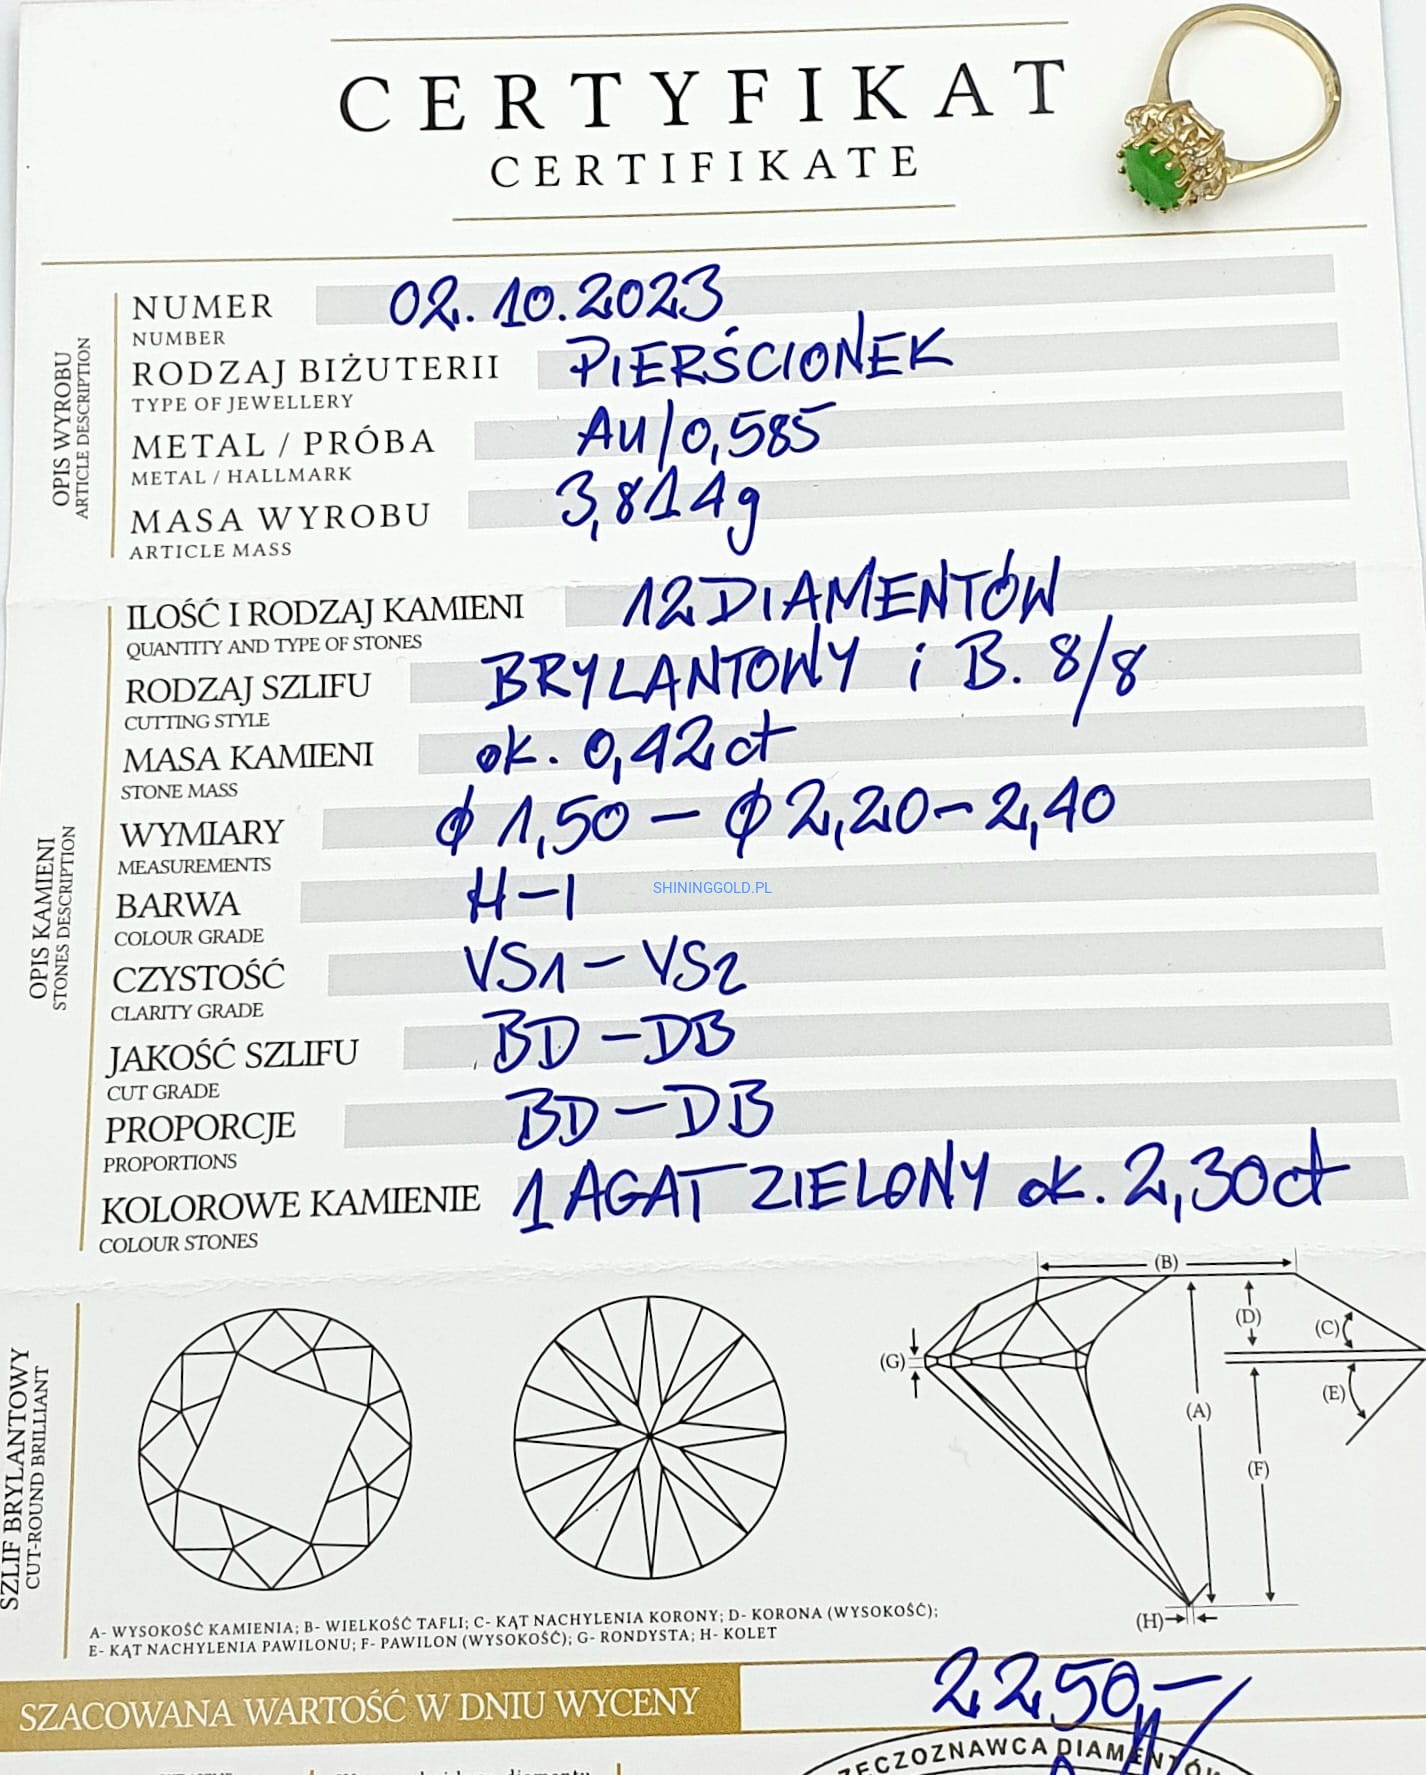 CERTYFIKAT
CERTIFIKATE
OPIS WYROBU
ARTICLE DESCRIPTION
NUMER 02.10.2023
NUMBER
RODZAJ BIŻUTERII PIERŚCIONEK
TYPE OF JEWELLERY
METAL / PRÓBA AU/0,585
METAL / HALLMARK
MASA WYROBU 3,814g
ARTICLE MASS
OPIS KAMIENI
STONES DESCRIPTION
ILOŚĆ I RODZAJ KAMIENI 12 DIAMENTÓW
QUANTITY AND TYPE OF STONES
RODZAJ SZLIFU BRYLANTOWY i B. 8/8
CUTTING STYLE
MASA KAMIENI ok. 0,42 ct
STONE MASS
WYMIARY ϕ 1,50 – ϕ 2,20 – 2,40
MEASUREMENTS
BARWA H–I
COLOUR GRADE
SHININGGOLD.PL
CZYSTOŚĆ VS1 – VS2
CLARITY GRADE
JAKOŚĆ SZLIFU BD – DB
CUT GRADE
PROPORCJE BD – DB
PROPORTIONS
KOLOROWE KAMIENIE 1 AGAT ZIELONY ok. 2,30ct
COLOUR STONES
SZLIF BRYLANTOWY
CUT-ROUND BRILLIANT
(B)
(D)
(C)
(G)
(E)
(A)
(F)
(H)
A- WYSOKOŚĆ KAMIENIA; B- WIELKOŚĆ TAFLI; C- KĄT NACHYLENIA KORONY; D- KORONA (WYSOKOŚĆ);
E- KĄT NACHYLENIA PAWILONU; F- PAWILON (WYSOKOŚĆ); G- RONDYSTA; H- KOLET
SZACOWANA WARTOŚĆ W DNIU WYCENY 2250,–
RZECZOZNAWCA DIAMENTÓW